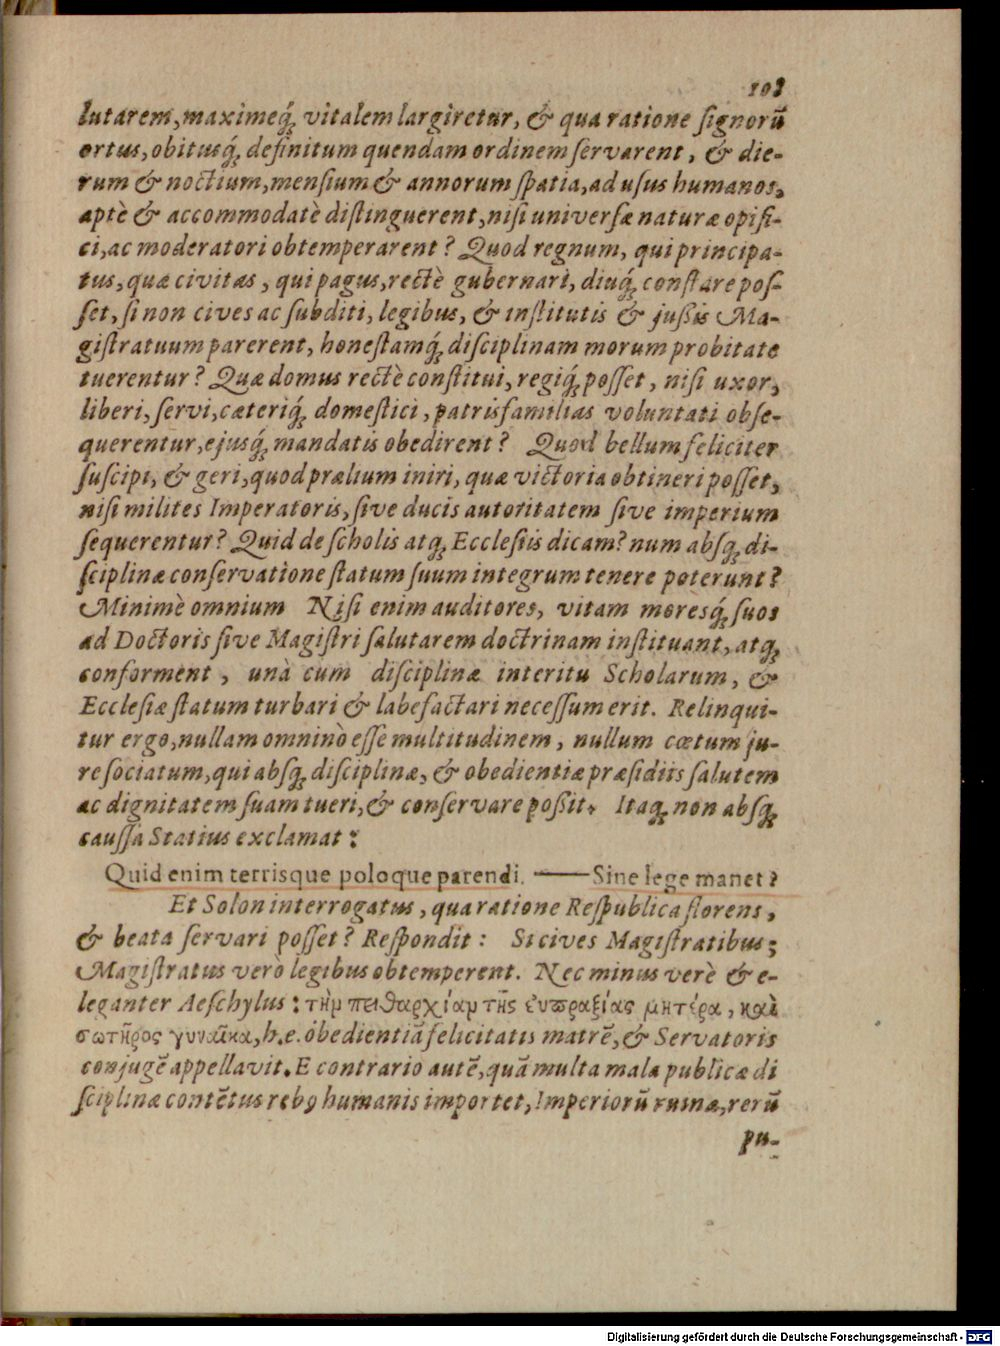 103
lutarem, maximeq́; vitalem largiretur, & qua ratione ſignorũ
ortus, obitusq́; definitum quendam ordinem ſervarent, & die-
rum & noctium, menſium & annorum ſpatia, ad uſus humanos,
aptè & accommodatè diſtinguerent, niſi univerſæ naturæ opifi-
ci, ac moderatori obtemperarent? Quod regnum, qui principa-
tus, quæ civitas, qui pagus, rectè gubernari, diuq́; conſtare poſ-
ſet, ſi non cives ac ſubditi, legibus, & inſtitutis & jußis Ma-
giſtratuum parerent, honeſtamq́; diſciplinam morum probitate
tuerentur? Quæ domus rectè conſtitui, regiq́; poſſet, niſi uxor,
liberi, ſervi, cæteriq́; domeſtici, patrisfamilias voluntati obſe-
querentur, ejusq́; mandatis obedirent? Quod bellum feliciter
ſuſcipi, & geri, quod prælium iniri, quæ victoria obtineri poſſet,
niſi milites Imperatoris, ſive ducis autoritatem ſive imperium
ſequerentur? Quid de ſcholis atq; Eccleſiis dicam? num absq; di-
ſciplinæ conſervatione ſtatum ſuum integrum tenere poterunt?
Minimè omnium Niſi enim auditores, vitam moresq́; ſuos
ad Doctoris ſive Magiſtri ſalutarem doctrinam inſtituant, atq;
conforment, unà cum diſciplinæ interitu Scholarum, &
Eccleſiæ ſtatum turbari & labefactari neceſſum erit. Relinqui-
tur ergo, nullam omninò eſſe multitudinem, nullum cœtum ju-
re ſociatum, qui absq; diſciplinæ, & obedientiæ præſidiis ſalutem
ac dignitatem ſuam tueri, & conſervare poßit. Itaq; non absq;
cauſſa Statius exclamat:
Quid enim terrisque poloque parendi. —— Sine lege manet?
Et Solon interrogatus, qua ratione Reſpublica florens,
& beata ſervari poſſet? Reſpondit: Si cives Magiſtratibus;
Magiſtratus verò legibus obtemperent. Nec minus verè & e-
leganter Aeſchylus: τὴν πειθαρχίαν τῆς ἐυπραξίας μητέρα, καὶ
σωτῆρος γυναῖκα, h.e. obedientiã felicitatis matrẽ, & Servatoris
conjugẽ appellavit. E contrario autẽ, quã multa mala publicæ di
ſciplinæ contẽtus rebꝰ humanis importet, Imperiorũ ruinæ, rerũ
pu-
Digitalisierung gefördert durch die Deutsche Forschungsgemeinschaft - DFG